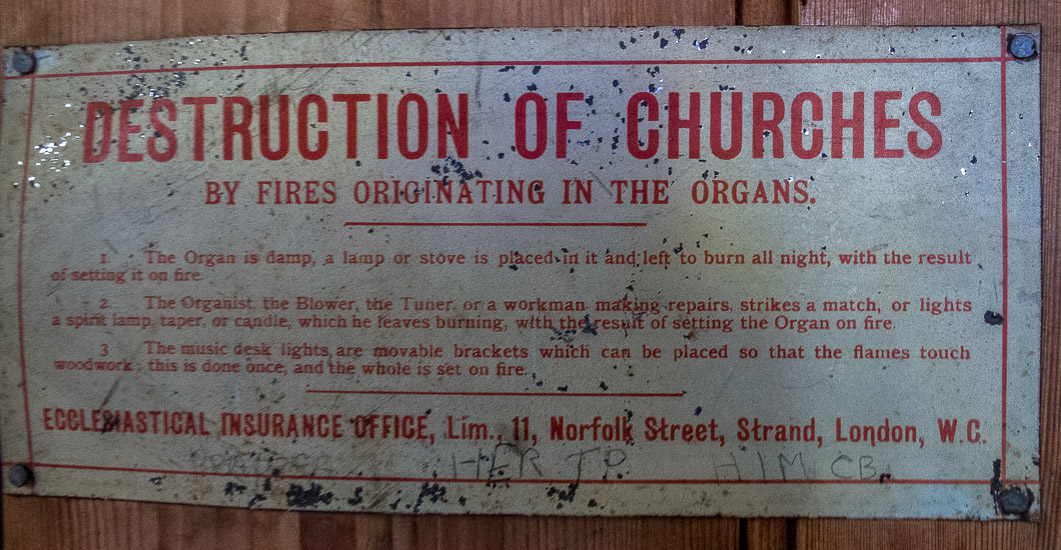 DESTRUCTION OF CHURCHES
BY FIRES ORIGINATING IN THE ORGANS.
1 The Organ is damp, a lamp or stove is placed in it and left to burn all night, with the result
of setting it on fire.
2 The Organist, the Blower, the Tuner, or a workman making repairs, strikes a match, or lights
a spirit lamp, taper, or candle, which he leaves burning, with the result of setting the Organ on fire.
3 The music desk lights are movable brackets which can be placed so that the flames touch
woodwork; this is done once, and the whole is set on fire.
ECCLESIASTICAL INSURANCE OFFICE, Lim., 11, Norfolk Street, Strand, London, W.C.
HER J.P. HIM CB.